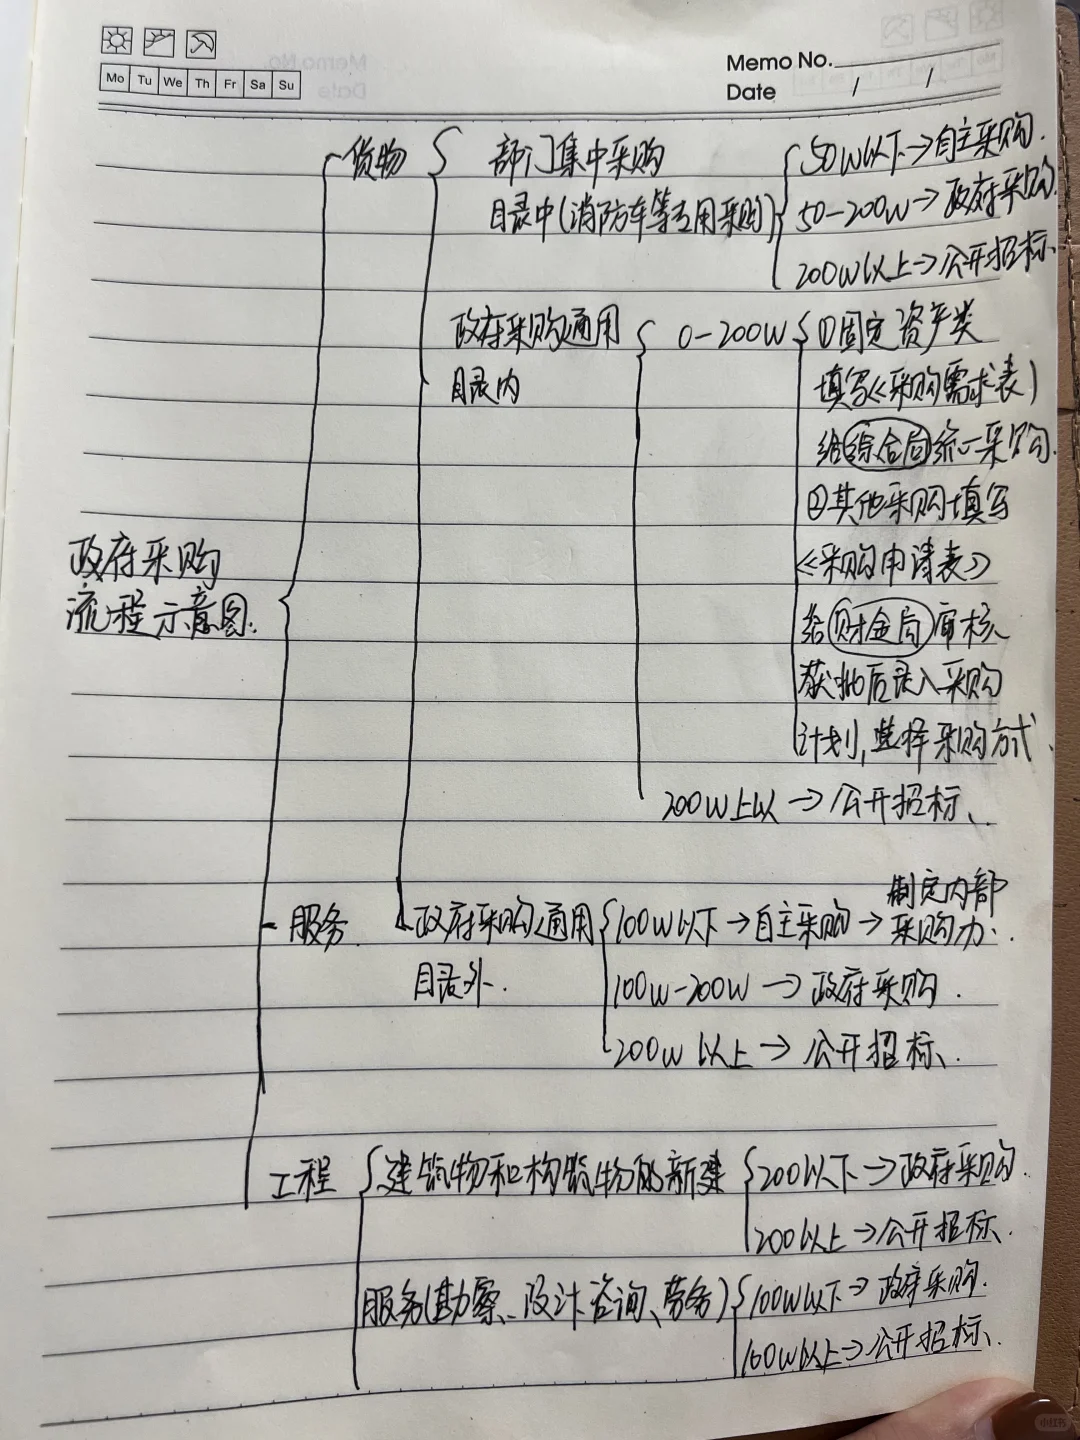 Mo Tu We Th Fr Sa Su
Memo No.
Date / /
货物
部门集中采购
目录中(消防车等专用采购)
50W以下→自主采购.
50-200W→政府采购.
200W以上→公开招标.
政府采购通用
目录内
0-200W
①固定资产类
填写《采购需求表》
给综合局统一采购.
②其他采购填写
《采购申请表》
给财金局审核
获批后录入采购
计划,选择采购方式.
200W上以→公开招标.
政府采购
流程示意图:
服务.
政府采购通用
目录外.
100W以下→自主采购→
制定内部
采购办.
100W-200W→政府采购.
200W以上→公开招标.
工程
建筑物和构筑物的新建
200以下→政府采购.
200以上→公开招标.
服务(勘察、设计咨询、劳务)
100W以下→政府采购.
100W以上→公开招标.
小红书